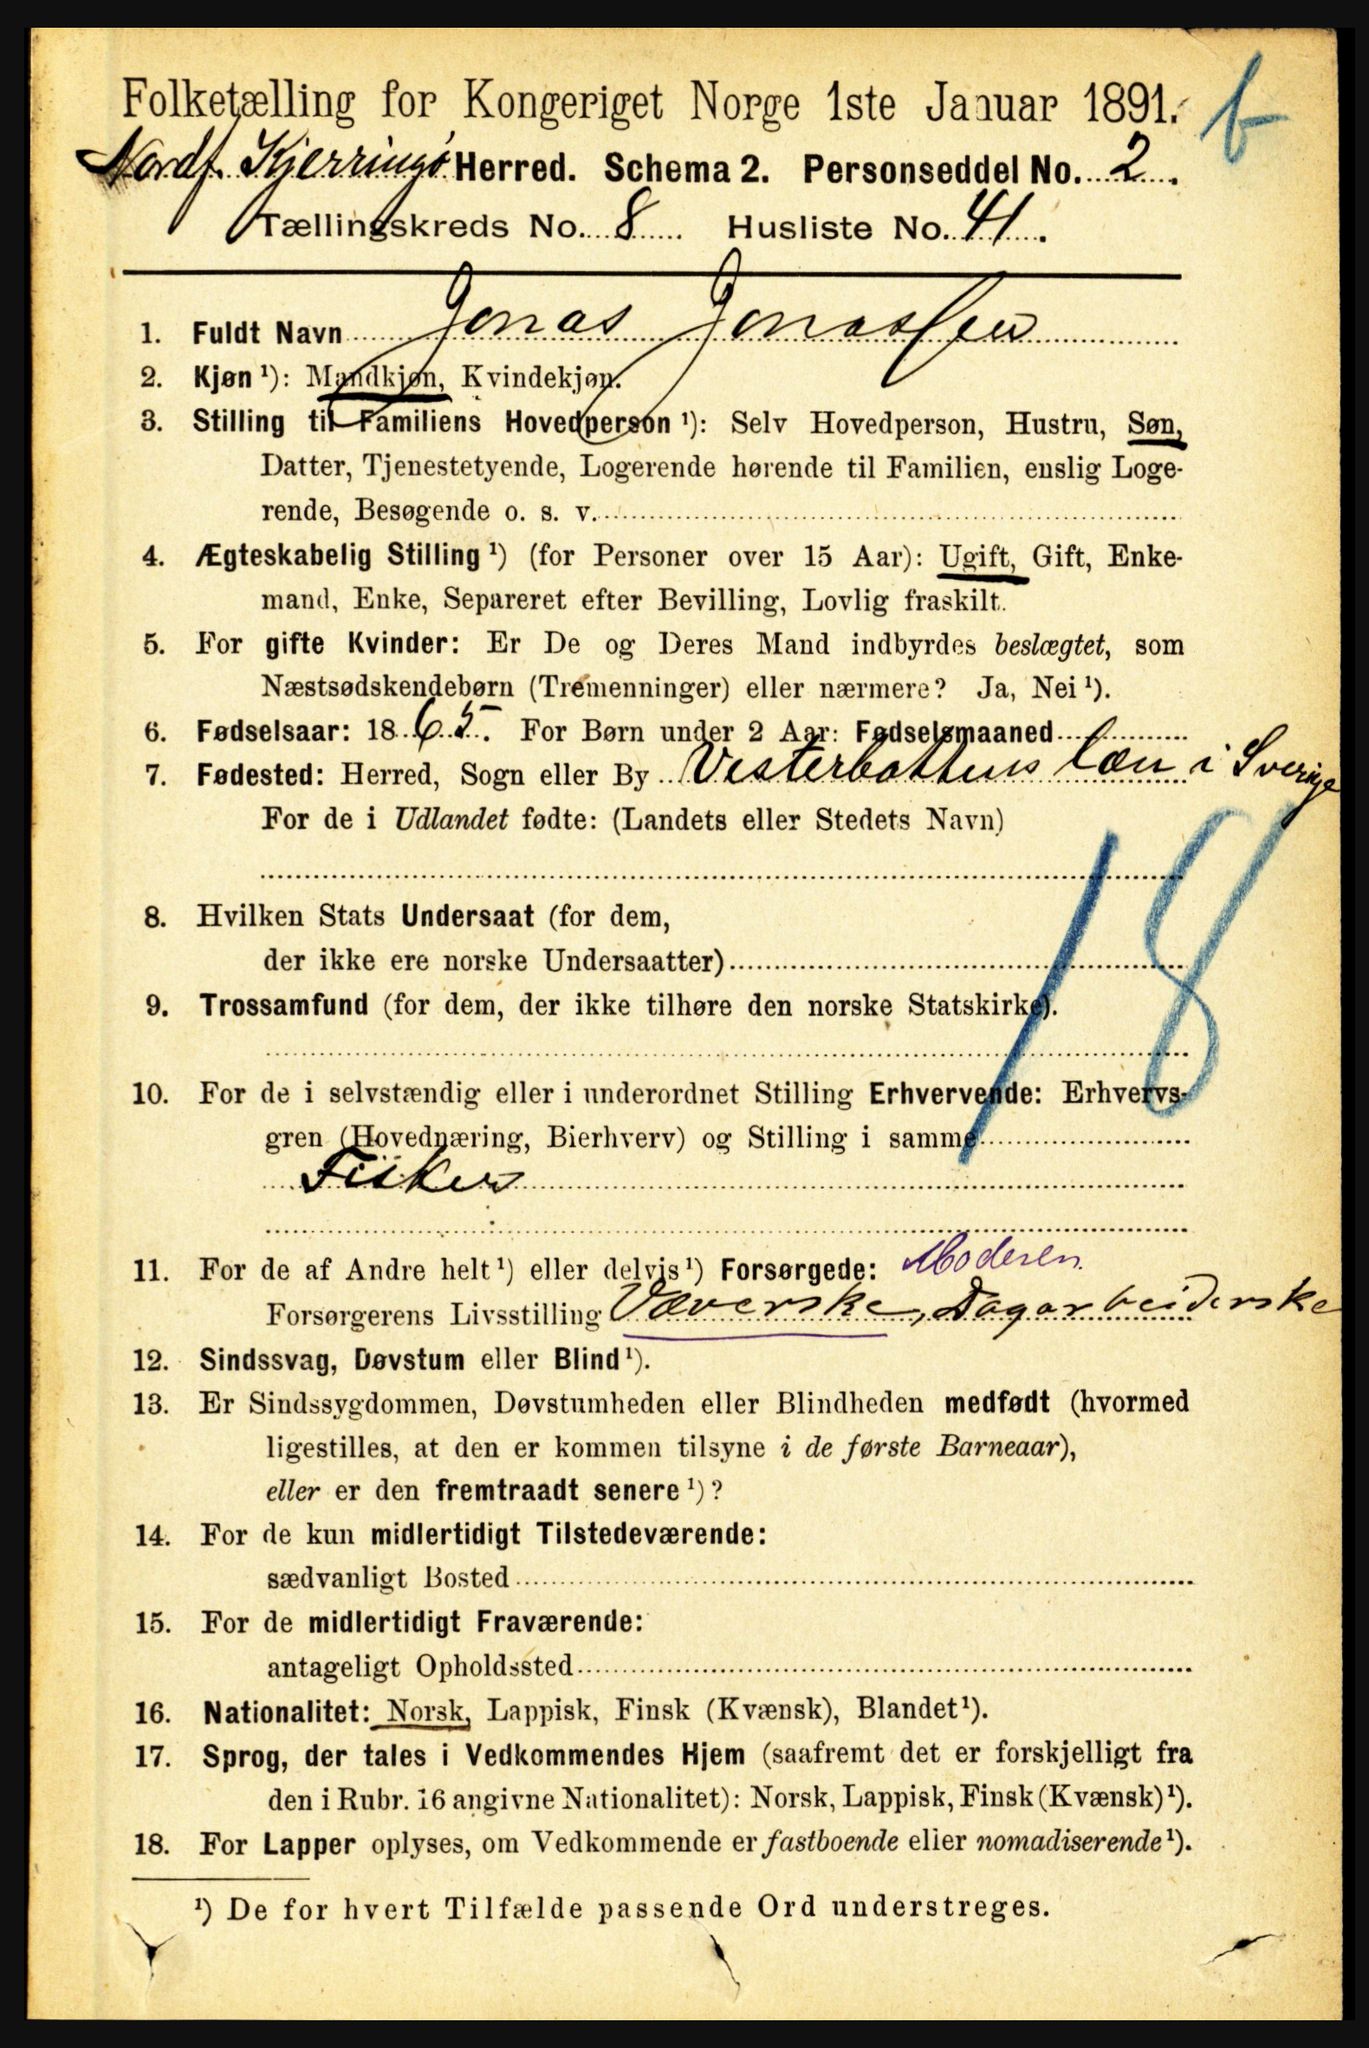 Folketælling for Kongeriget Norge 1ste Januar 1891.
b
Nordf. Kjerringø Herred. Schema 2. Personseddel No. 2.
Tællingskreds No. 8 Husliste No. 41.
1. Fuldt Navn Jonas Jonassen
2. Kjøn ¹): Mandkjøn, Kvindekjøn.
3. Stilling til Familiens Hovedperson ¹): Selv Hovedperson, Hustru, Søn,
Datter, Tjenestetyende, Logerende hørende til Familien, enslig Loge-
rende, Besøgende o. s. v.
4. Ægteskabelig Stilling ¹) (for Personer over 15 Aar): Ugift, Gift, Enke-
mand, Enke, Separeret efter Bevilling, Lovlig fraskilt.
5. For gifte Kvinder: Er De og Deres Mand indbyrdes beslægtet, som
Næstsødskendebørn (Tremenninger) eller nærmere? Ja, Nei ¹).
6. Fødselsaar: 1865. For Børn under 2 Aar: Fødselsmaaned
7. Fødested: Herred, Sogn eller By Vesterbottens læn i Sverige
For de i Udlandet fødte: (Landets eller Stedets Navn)
18
8. Hvilken Stats Undersaat (for dem,
der ikke ere norske Undersaatter)
9. Trossamfund (for dem, der ikke tilhøre den norske Statskirke).
10. For de i selvstændig eller i underordnet Stilling Erhvervende: Erhvervs-
gren (Hovednæring, Bierhverv) og Stilling i samme
Fisker
11. For de af Andre helt ¹) eller delvis ¹) Forsørgede: Moderen.
Forsørgerens Livsstilling Væverske, Dagarbeiderske
12. Sindssvag, Døvstum eller Blind ¹).
13. Er Sindssygdommen, Døvstumheden eller Blindheden medfødt (hvormed
ligestilles, at den er kommen tilsyne i de første Barneaar),
eller er den fremtraadt senere ¹)?
14. For de kun midlertidigt Tilstedeværende:
sædvanligt Bosted
15. For de midlertidigt Fraværende:
antageligt Opholdssted
16. Nationalitet: Norsk, Lappisk, Finsk (Kvænsk), Blandet ¹).
17. Sprog, der tales i Vedkommendes Hjem (saafremt det er forskjelligt fra
den i Rubr. 16 angivne Nationalitet): Norsk, Lappisk, Finsk (Kvænsk) ¹).
18. For Lapper oplyses, om Vedkommende er fastboende eller nomadiserende ¹).
¹) De for hvert Tilfælde passende Ord understreges.